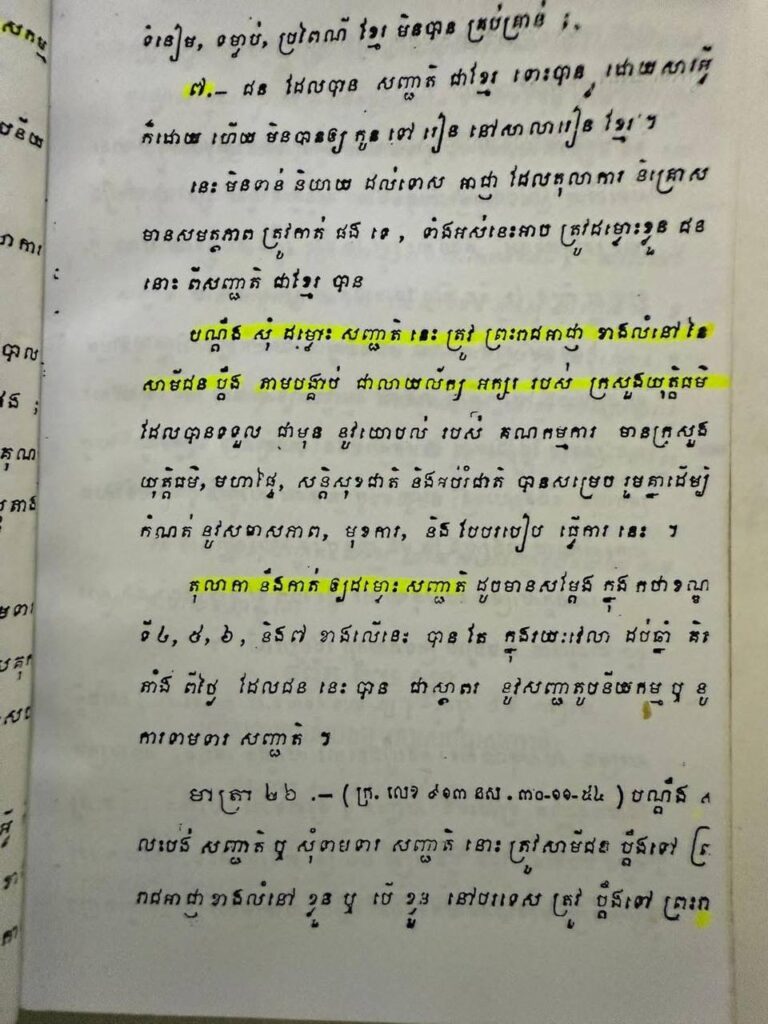 ទំនៀម, ទម្លាប់, ប្រពៃណី ខ្មែរ មិនបាន គ្រប់គ្រាន់ ;
៧.– ជន ដែលបាន សញ្ជាតិ ជាខ្មែរ ទោះបាន ដោយសារអ្វី
ក៏ដោយ ហើយ មិនបានឲ្យ កូន ទៅ រៀន នៅសាលារៀន ខ្មែរ ។
នេះ មិនទាន់ និយាយ ដល់ទោស អាជ្ញា ដែលតុលាការ និគ្រោស
មានសមត្ថភាព ត្រូវកាត់ ផង ទេ , ទាំងអស់នេះអាច ត្រូវដម្លោះខ្លួន ជន
នោះ ពីសញ្ជាតិ ជាខ្មែរ បាន
បណ្ដឹង សុំ ដម្លោះ សញ្ជាតិ នេះ ត្រូវ ព្រះរាជអាជ្ញា ខាងលំនៅ នៃ
សាមីជន ប្ដឹង តាមបង្គាប់ ជាលាយល័ក្ខ អក្សរ របស់ ក្រសួងយុត្តិធម៌
ដែលបានទទួល ជាមុន នូវយោបល់ របស់ គណកម្មការ មានក្រសួង
យុត្តិធម៌, មហាផ្ទៃ, សន្តិសុខជាតិ និងអប់រំជាតិ បានសម្រេច រួមគ្នាដើម្បី
កំណត់ នូវសមាសភាព, មុខការ, និង បែបរបៀប ធ្វើការ នេះ ។
តុលាការ នឹងកាត់ ឲ្យដម្លោះ សញ្ជាតិ ដូចមានសម្ដែង ក្នុង កថាខណ្ឌ
ទី៤, ៥, ៦, និង៧ ខាងលើនេះ បាន តែ ក្នុងរយៈវេលា ដប់ឆ្នាំ គិត
តាំង ពីថ្ងៃ ដែលជន នេះ បាន ជាស្ថាពរ នូវសញ្ជាតូបនីយកម្ម ឬ នូ
ការទាមទារ សញ្ជាតិ ។
មាត្រា ២៦ .– ( ក្រ. លេខ ៩១៣ នស . ៣០-១១-៥៤ ) បណ្ដឹង
លះបង់ សញ្ជាតិ ឬ សុំទាមទារ សញ្ជាតិ នោះ ត្រូវសាមីជន ប្ដឹងទៅ ព្រ
រាជអាជ្ញាខាងលំនៅ ខ្លួន ឬ បើ ខ្លួន នៅបរទេស ត្រូវ ប្ដឹងទៅ ព្រះរា